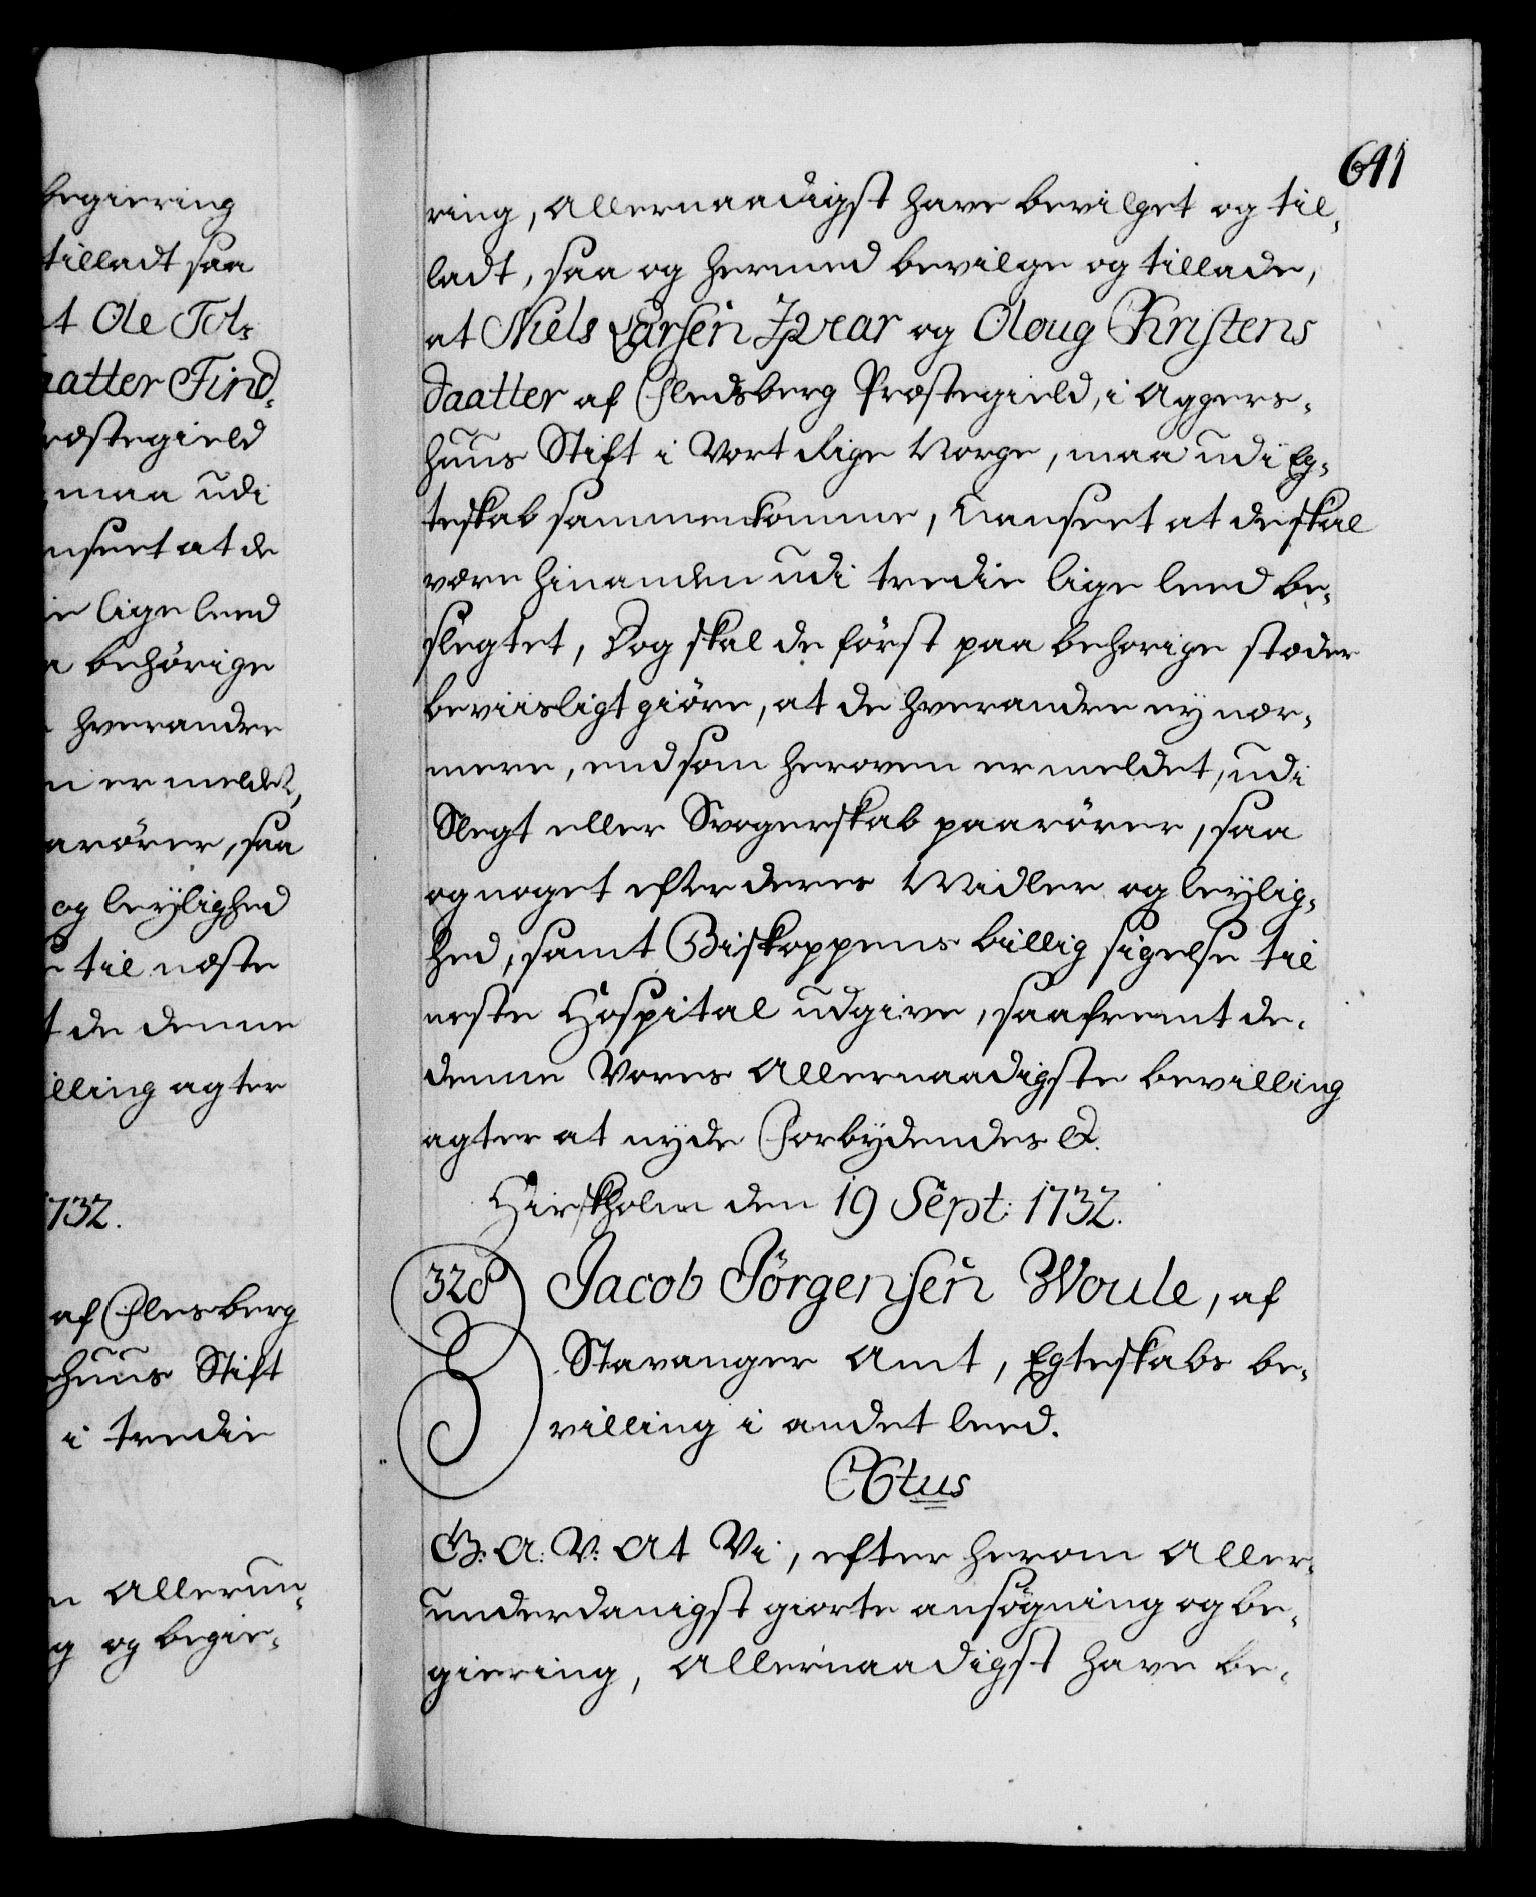 begiering
tilladt saa
at Ole Tol¬
aatter Find¬
ræstegield
maa udi
nseet at de
ie lige leed
a behörige
hverandre
n er meldet,
arörer, saa
og leÿlighed
til næste
t de denne
illing agter
1732.
af Flesberg
huus Stift
i tredie
n Allerun¬
g og begie¬
641
ring, Allernaadigst have bevilget og til¬
ladt, saa og hermed bevilge og tillade,
at Niels Larsen Juear og Oloug Christens
daatter af Fledsberg Præstegield, i Aggers¬
huus Stift i Vort Rige Norge, maa udi Eg¬
teskab sammenkomme, Uanseet at de skal
være hinanden udi tredie lige leed be¬
slegtet, Dog skal de först paa behorige stæder
beviisligt giöre, at de hverandre ey nær¬
mere, end som heroven er meldet, udi
Slegt eller Svogerskab paarörer, saa
og noget efter deres Midler og leÿlig¬
hed, samt Biskoppens billig sigelse til
neste Hospital udgive, saafremt de
denne Vores Allernaadigste bevilling
agter at nyde Forbÿdendes &.
Hirskholm den 19 Sept: 1732.
328 Jacob Jörgensen Woule, af
Stavanger Amt, Egteskabs be¬
villing i andet leed.
C6tus
G: A: V: At Vi, efter herom Aller¬
underdanigst giorte ansögning og be¬
giering, Allernaadigst have be¬